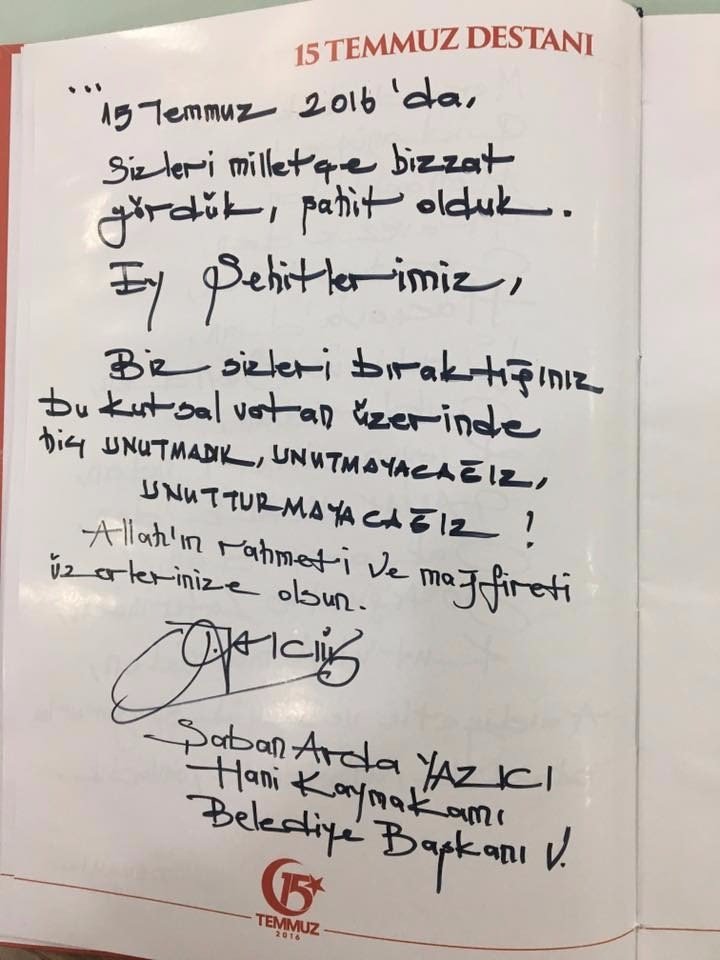 15 TEMMUZ DESTANI
...
15 Temmuz 2016'da,
Sizleri milletçe bizzat
gördük, şahit olduk.
Ey Şehitlerimiz,
Biz sizleri bıraktığınız
bu kutsal vatan üzerinde
hiç UNUTMADIK, UNUTMAYACAĞIZ,
UNUTTURMAYACAĞIZ !
Allah'ın rahmeti ve mağfireti
üzerlerinize olsun.
Şaban Arda YAZICI
Hani Kaymakamı
Belediye Başkanı V.
15
TEMMUZ
2016